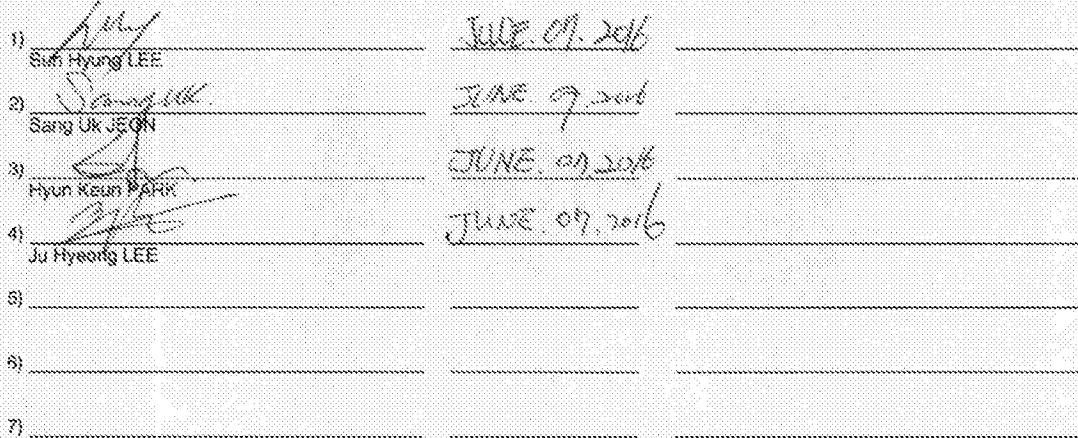 1) JUNE. 07. 2016
Sun Hyung LEE
2) Sang UK. JUNE 07 2016
Sang Uk JEON
3) JUNE. 07. 2016
Hyun Keun PARK
4) JUNE. 07. 2016
Ju Hyeong LEE
5)
6)
7)